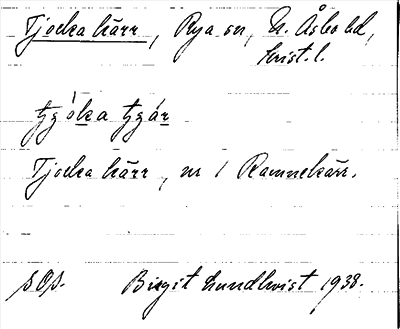 Tjocka kärr, Rya sn, N. Åsbo hd,
Krist. l.
Tjocka kärr, nr 1 Rammekärr.
Birgit Lundkvist 1938.